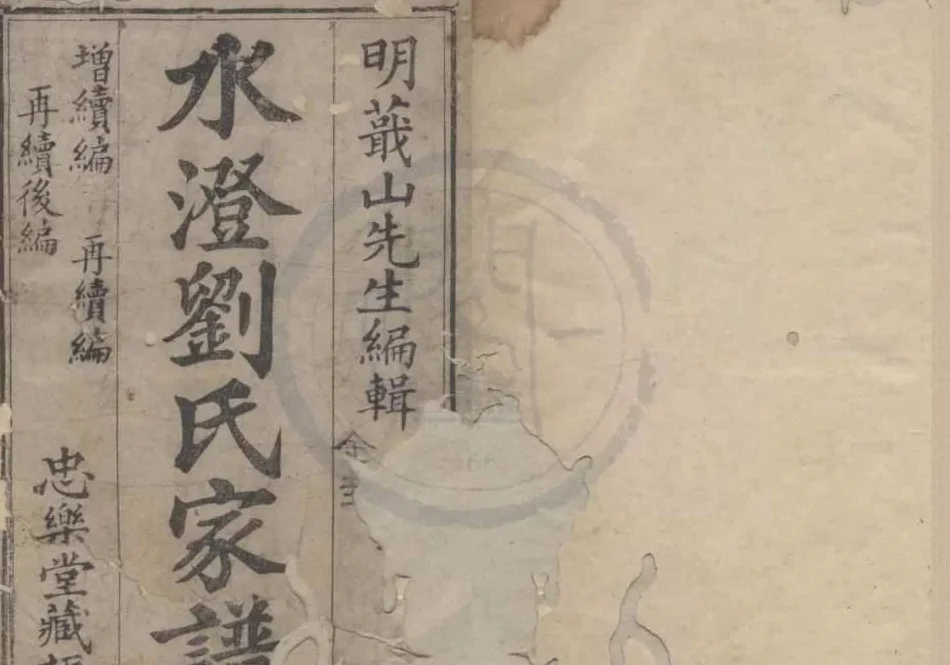 明蕺山先生編輯
水澄劉氏家譜
增續編 再續編
再續後編
忠樂堂藏